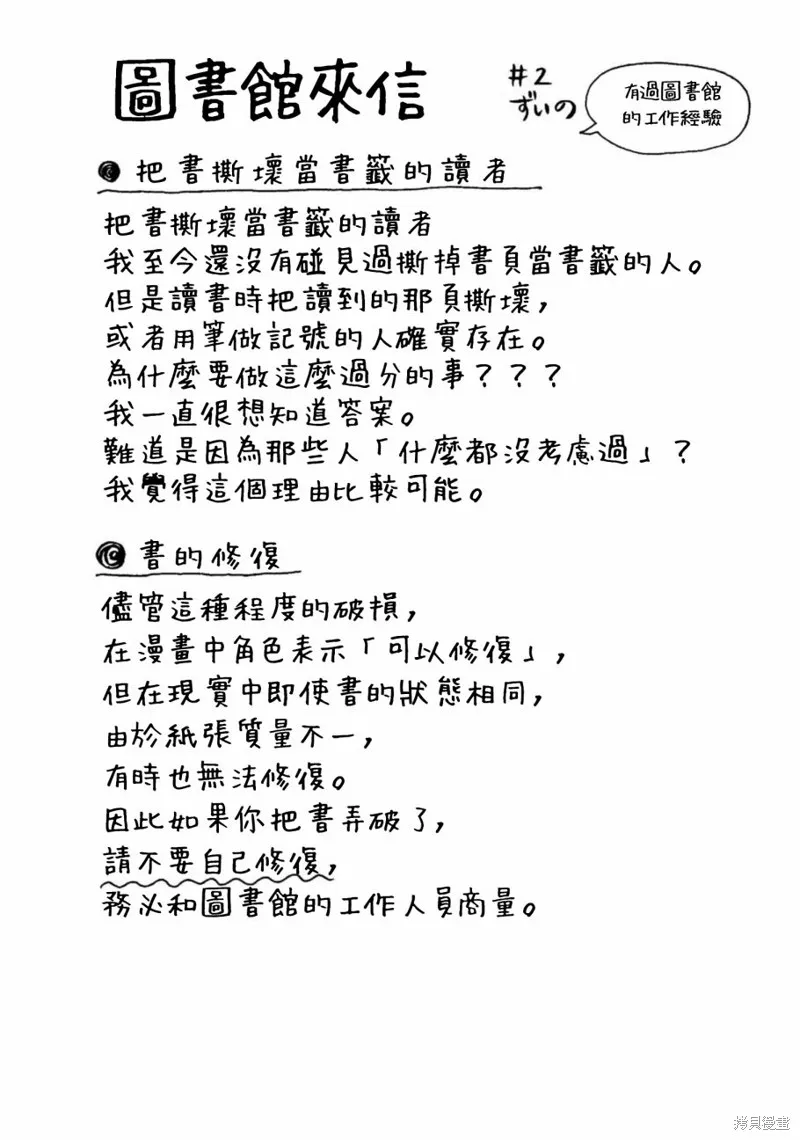 圖書館來信
#2
ずいの
有過圖書館
的工作經驗
把書撕壞當書籤的讀者
把書撕壞當書籤的讀者
我至今還沒有碰見過撕掉書頁當書籤的人。
但是讀書時把讀到的那頁撕壞，
或者用筆做記號的人確實存在。
為什麼要做這麼過分的事？？？
我一直很想知道答案。
難道是因為那些人「什麼都沒考慮過」？
我覺得這個理由比較可能。
書的修復
儘管這種程度的破損，
在漫畫中角色表示「可以修復」，
但在現實中即使書的狀態相同，
由於紙張質量不一，
有時也無法修復。
因此如果你把書弄破了，
請不要自己修復，
務必和圖書館的工作人員商量。
拷貝漫畫